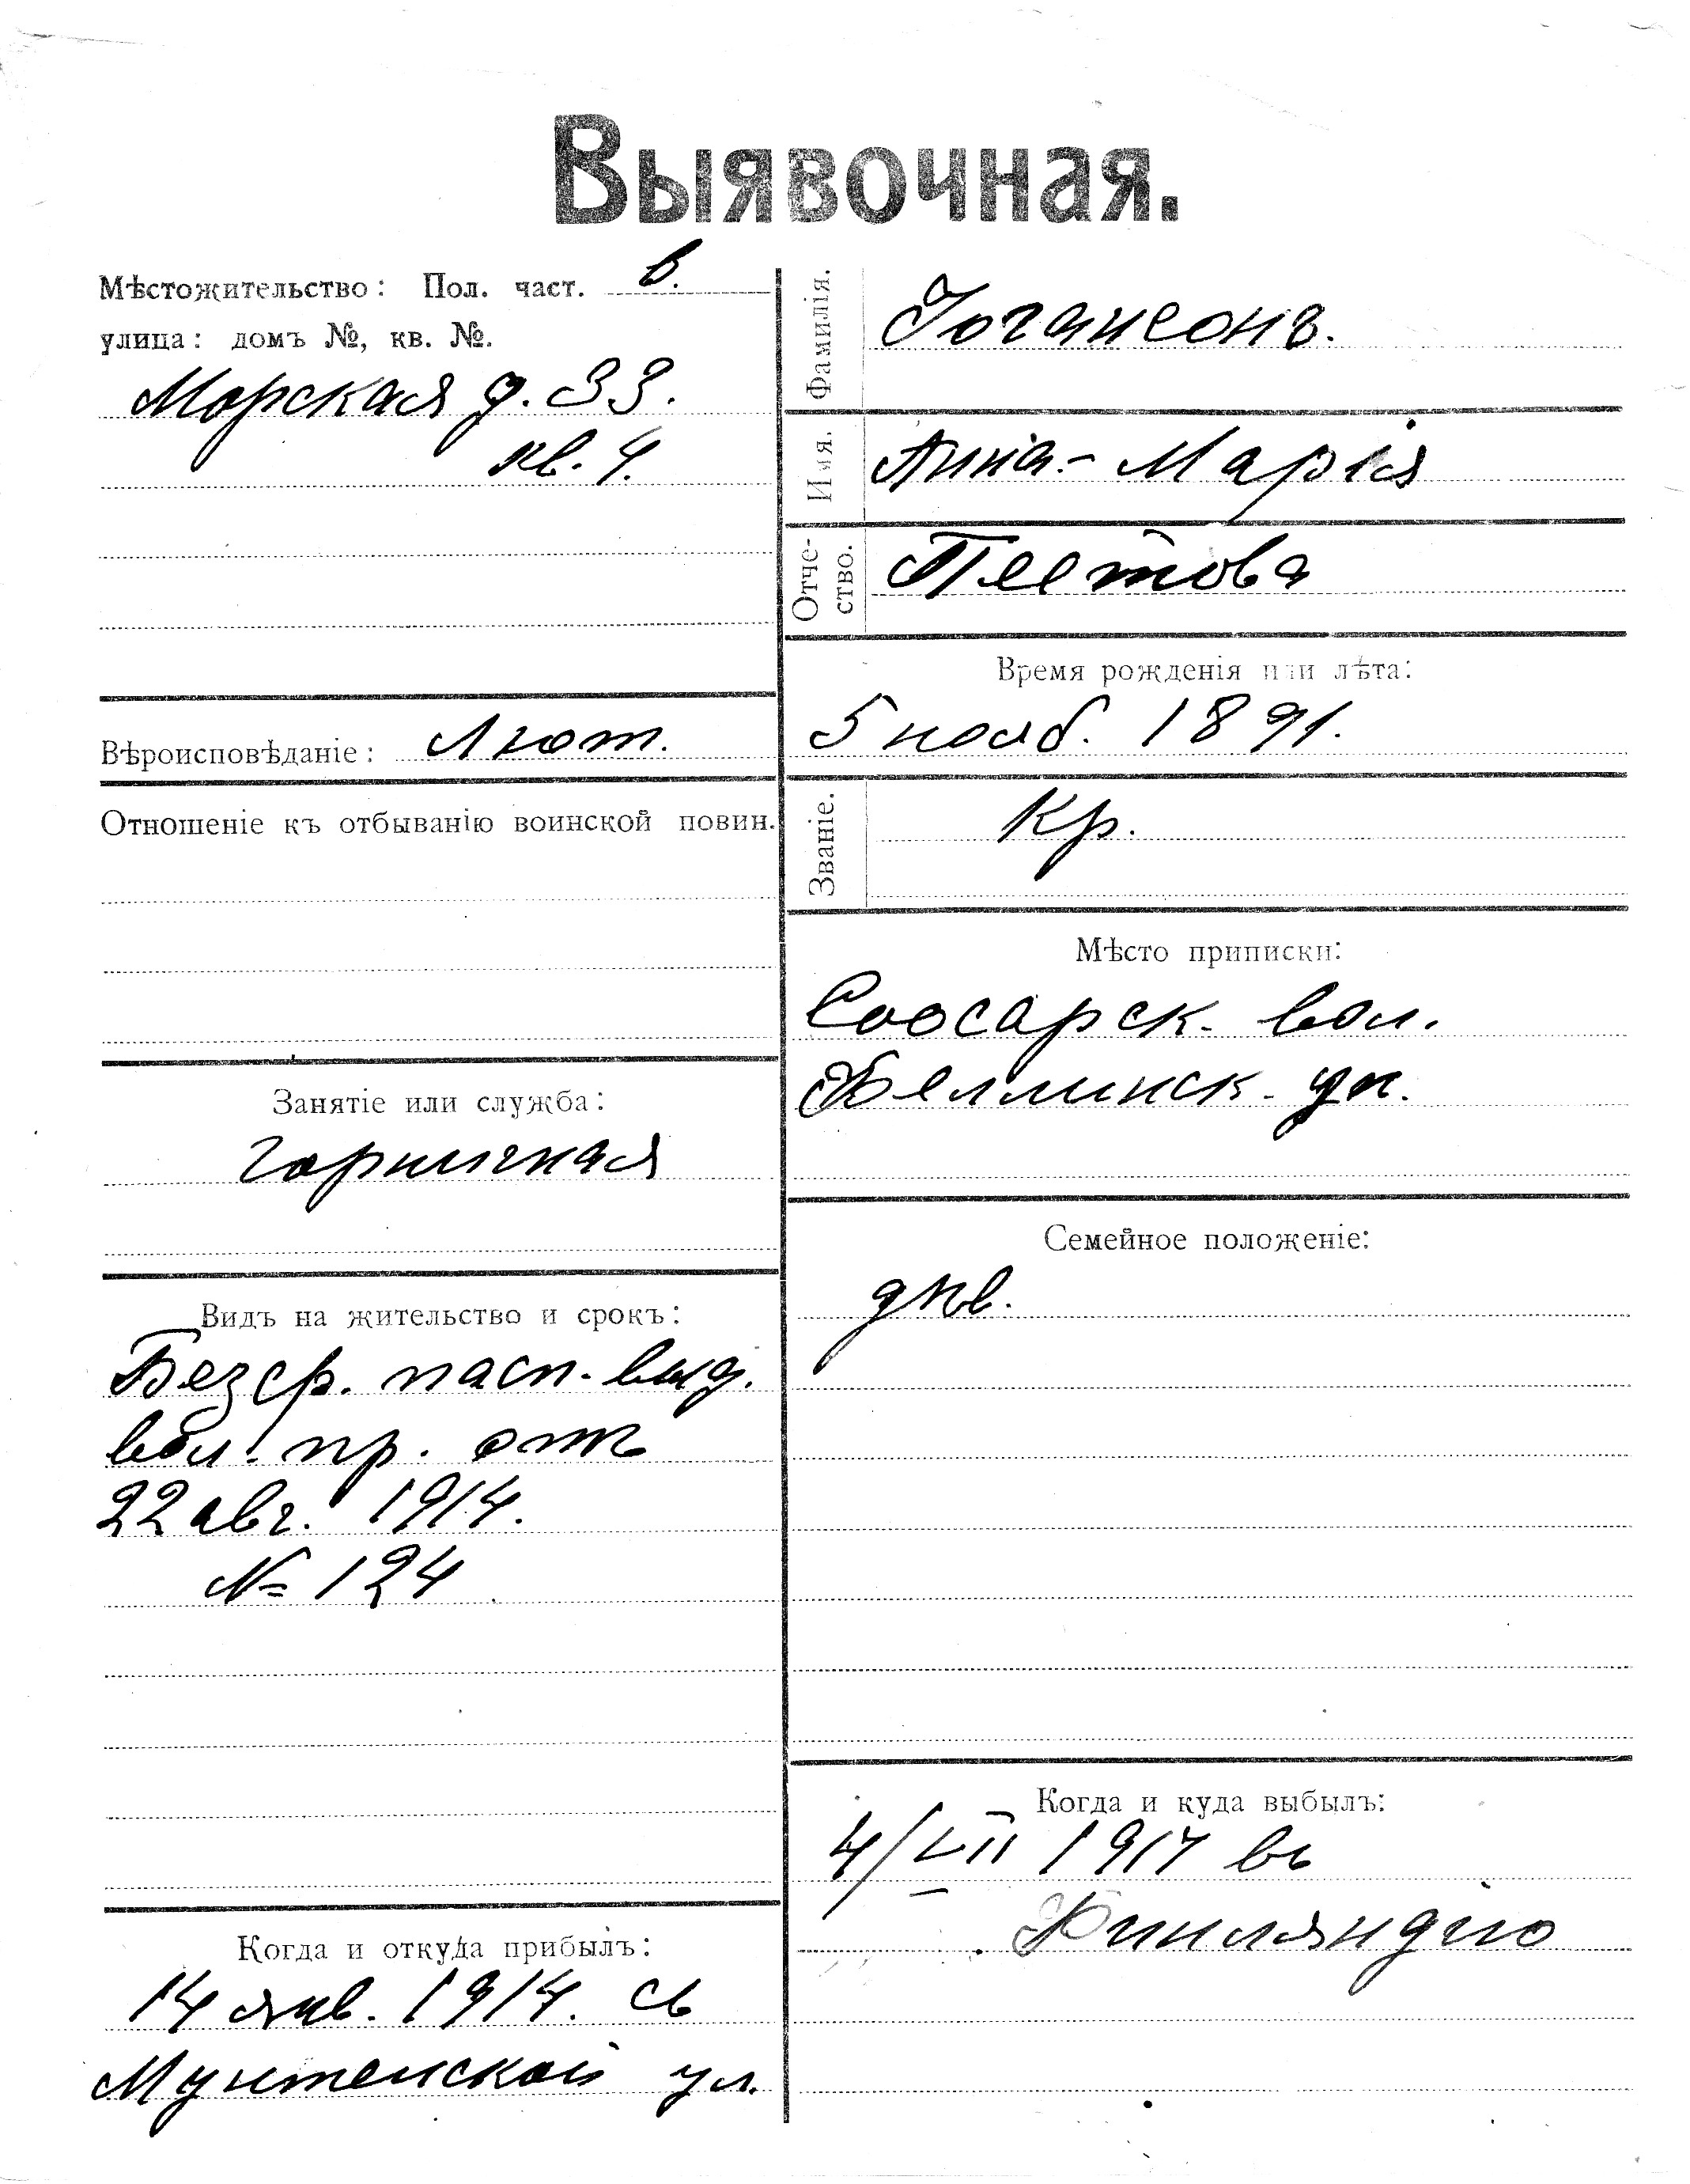 Выявочная.
Мѣстожительство: Пол. част. в.
улица: домъ №, кв. №.
Морская д. 33.
кв. 4.
Вѣроисповѣданіе: Лют.
Отношеніе къ отбыванію воинской повин.
Занятіе или служба:
горничная
Видъ на жительство и срокъ:
Безср. пасп. выд.
вол. пр. отъ
22 авг. 1914.
№ 124
Когда и откуда прибылъ:
14 янв. 1914. съ
Мунтенской ул.
Фамилія.
Іогансонъ.
Имя.
Анна-Марія
Отче-
ство.
Пеетова
Время рожденія или лѣта:
5 нояб. 1891.
Званіе.
Кр.
Мѣсто приписки:
Соосарск. вол.
Феллинск. у.
Семейное положеніе:
дѣв.
Когда и куда выбылъ:
4/VII 1917 въ
Финляндію